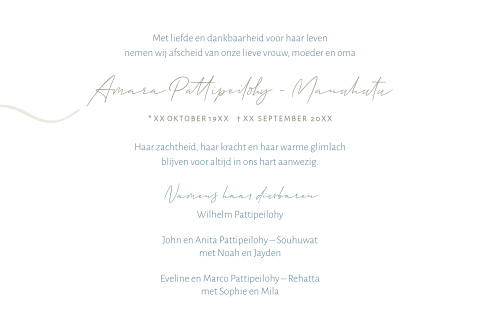 Met liefde en dankbaarheid voor haar leven
nemen wij afscheid van onze lieve vrouw, moeder en oma
Amara Pattipeilohy - Manuhutu
* XX OKTOBER 19XX † XX SEPTEMBER 20XX
Haar zachtheid, haar kracht en haar warme glimlach
blijven voor altijd in ons hart aanwezig.
Namens haar dierbaren
Wilhelm Pattipeilohy
John en Anita Pattipeilohy – Souhuwat
met Noah en Jayden
Eveline en Marco Pattipeilohy – Rehatta
met Sophie en Mila